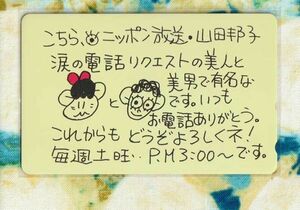 こちら、ニッポン放送・山田邦子
涙の電話リクエストの美人と
美男で有名な
と
です。いつも
お電話ありがとう。
これからも どうぞよろしくネ!
毎週土曜‥P.M3:00〜です。